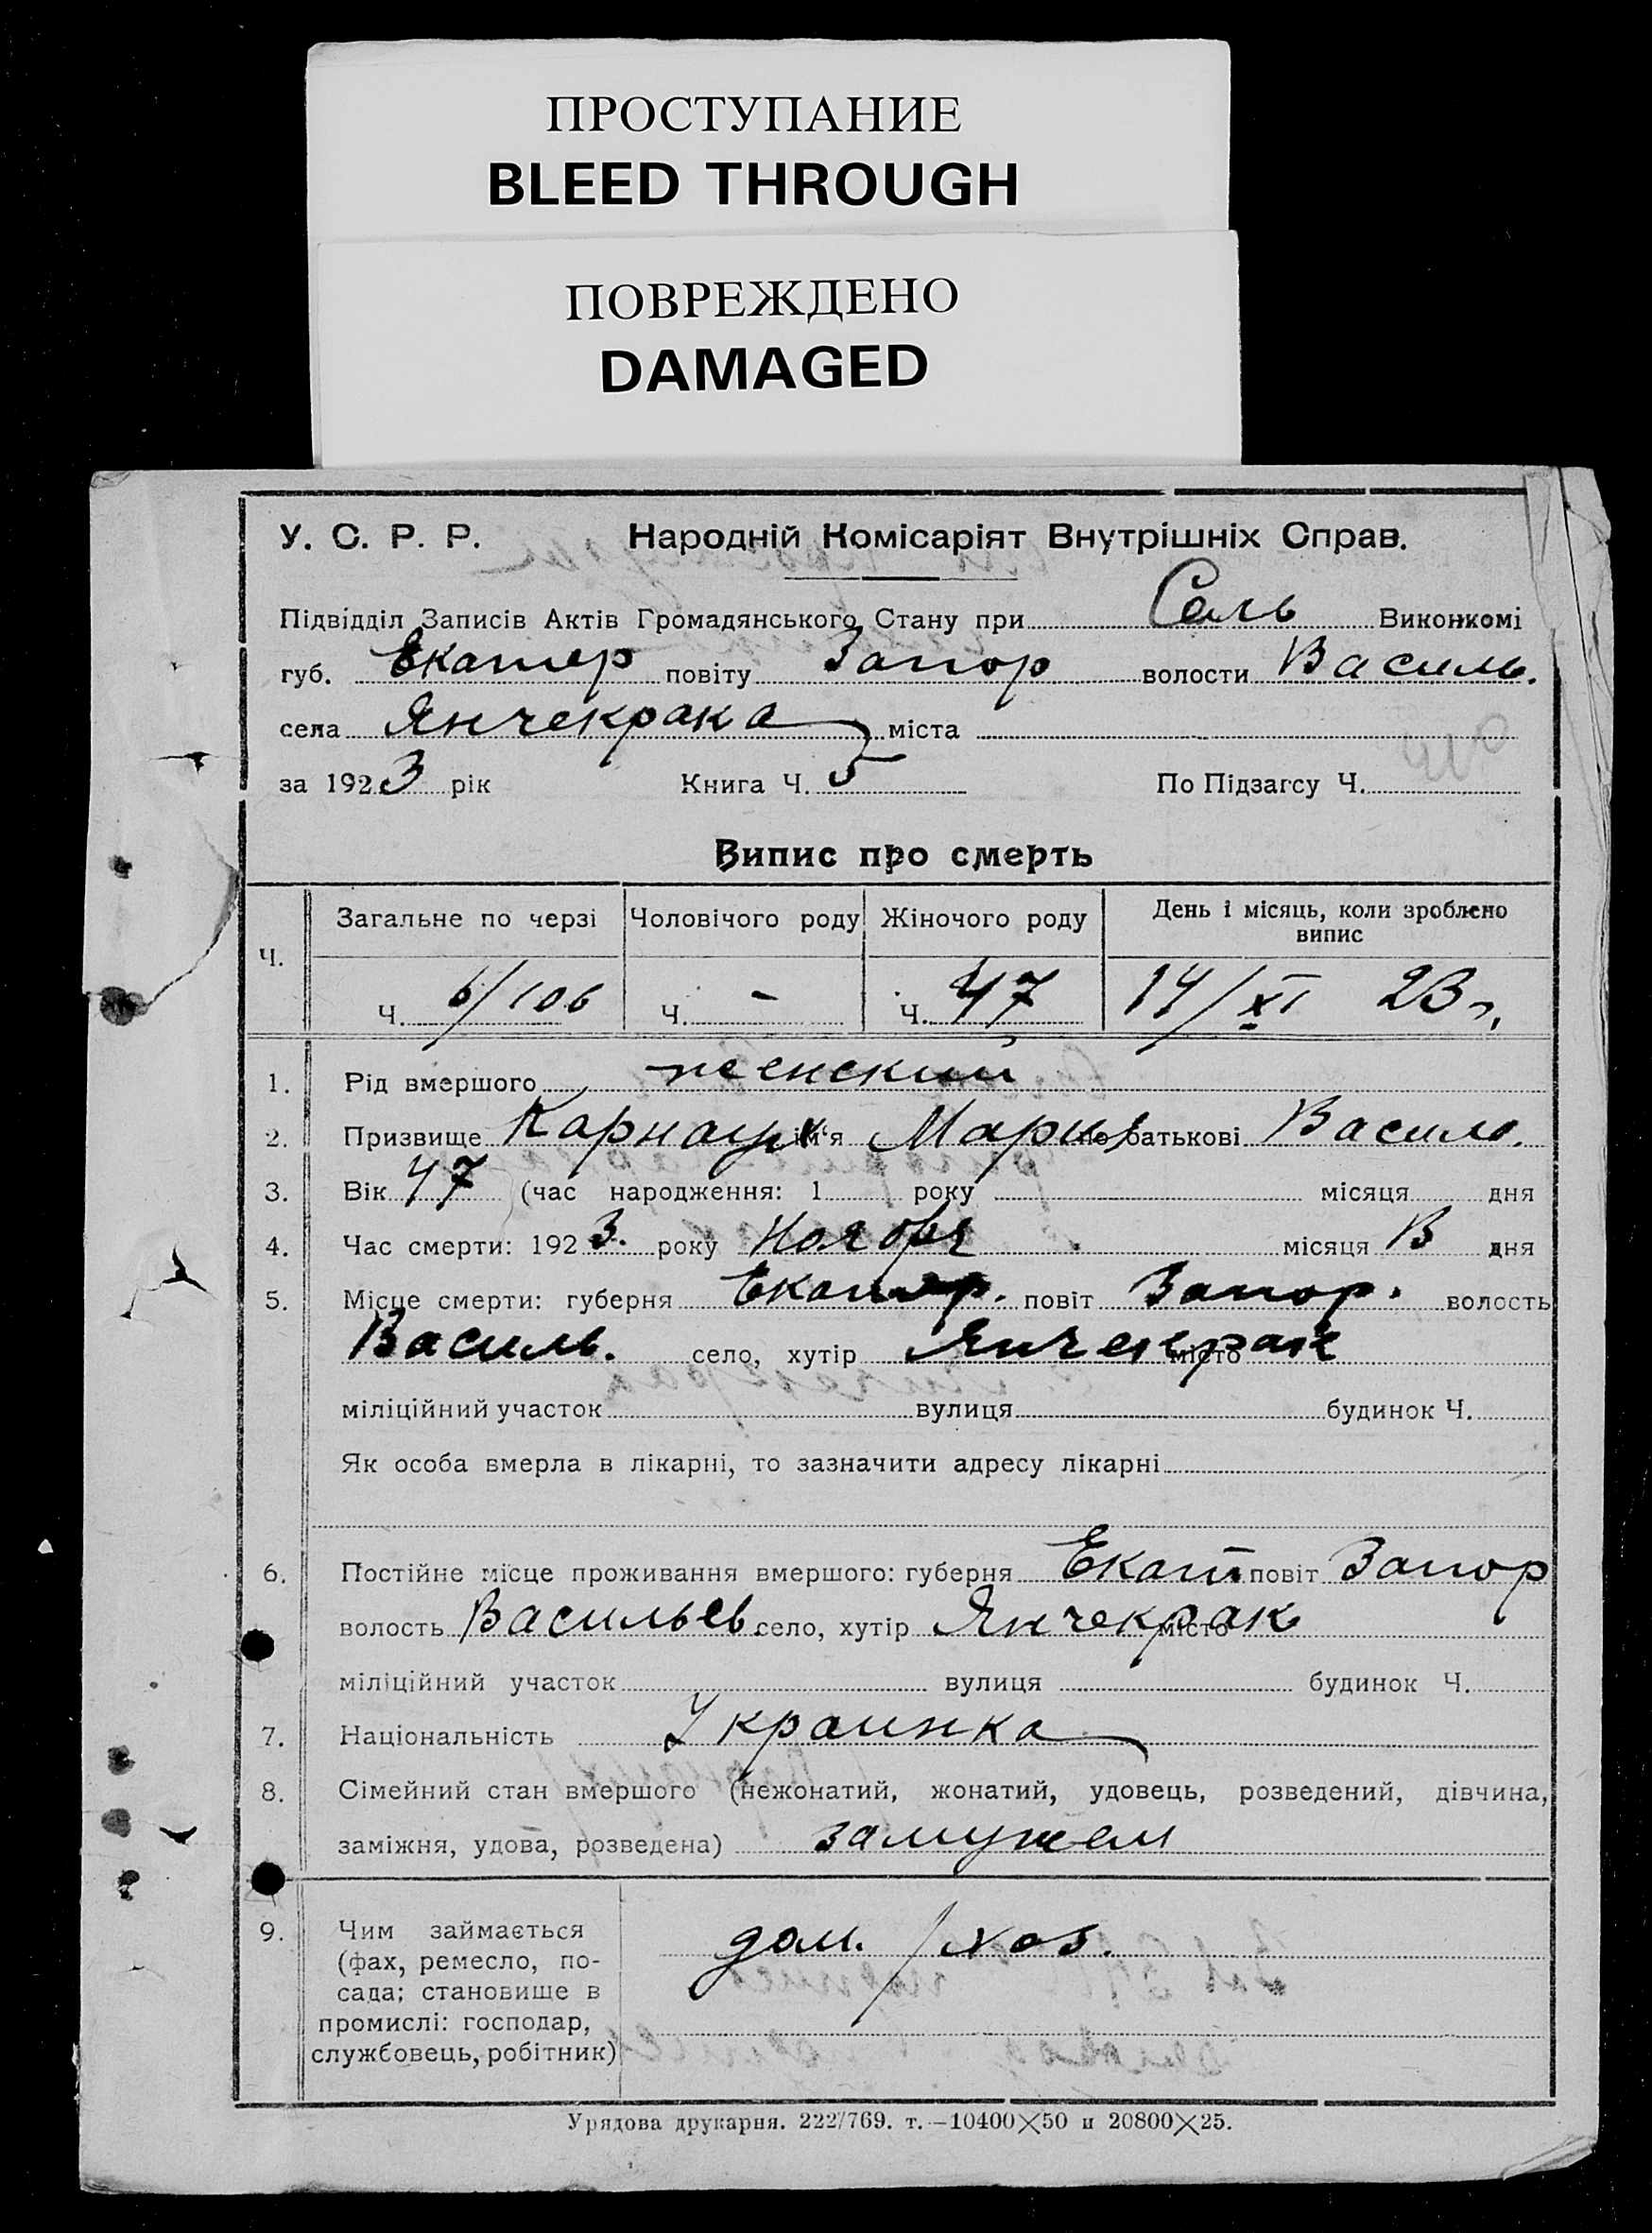 ПРОСТУПАНИЕ
BLEED THROUGH
ПОВРЕЖДЕНО
DAMAGED
У. С. Р. Р. Народній Комісаріят Внутрішніх Справ.
Підвідділ Записів Актів Громадянського Стану при Сель Виконкомі
губ. Екатер повіту Запор волости Василь.
села Янчекрака міста
за 1923 рік Книга Ч. 5 По Підзагсу Ч.
Випис про смерть
Ч. Загальне по черзі Чоловічого роду Жіночого роду День і місяць, коли зроблено випис
Ч. 6/106 Ч. - Ч. 47 14/XI 23 г.
1. Рід вмершого женский
2. Призвище Карнаух ім'я Мария по батькові Василь.
3. Вік 47 (час народження: 1 року місяця дня
4. Час смерти: 1923. року Ноября місяця 13 дня
5. Місце смерти: губерня Екатер. повіт Запор. волость
Василь. село, хутір Янчекрак місто
міліційний участок вулиця будинок Ч.
Як особа вмерла в лікарні, то зазначити адресу лікарні
6. Постійне місце проживання вмершого: губерня Екат. повіт Запор
волость Васильев село, хутір Янчекрак місто
міліційний участок вулиця будинок Ч.
7. Національність Украинка
8. Сімейний стан вмершого (нежонатий, жонатий, удовець, розведений, дівчина,
заміжня, удова, розведена) замужем
9. Чим займається дом. / хоз.
(фах, ремесло, по-
сада; становище в
промислі: господар,
службовець, робітник)
Урядова друкарня. 222/769. т.—10400×50 и 20800×25.